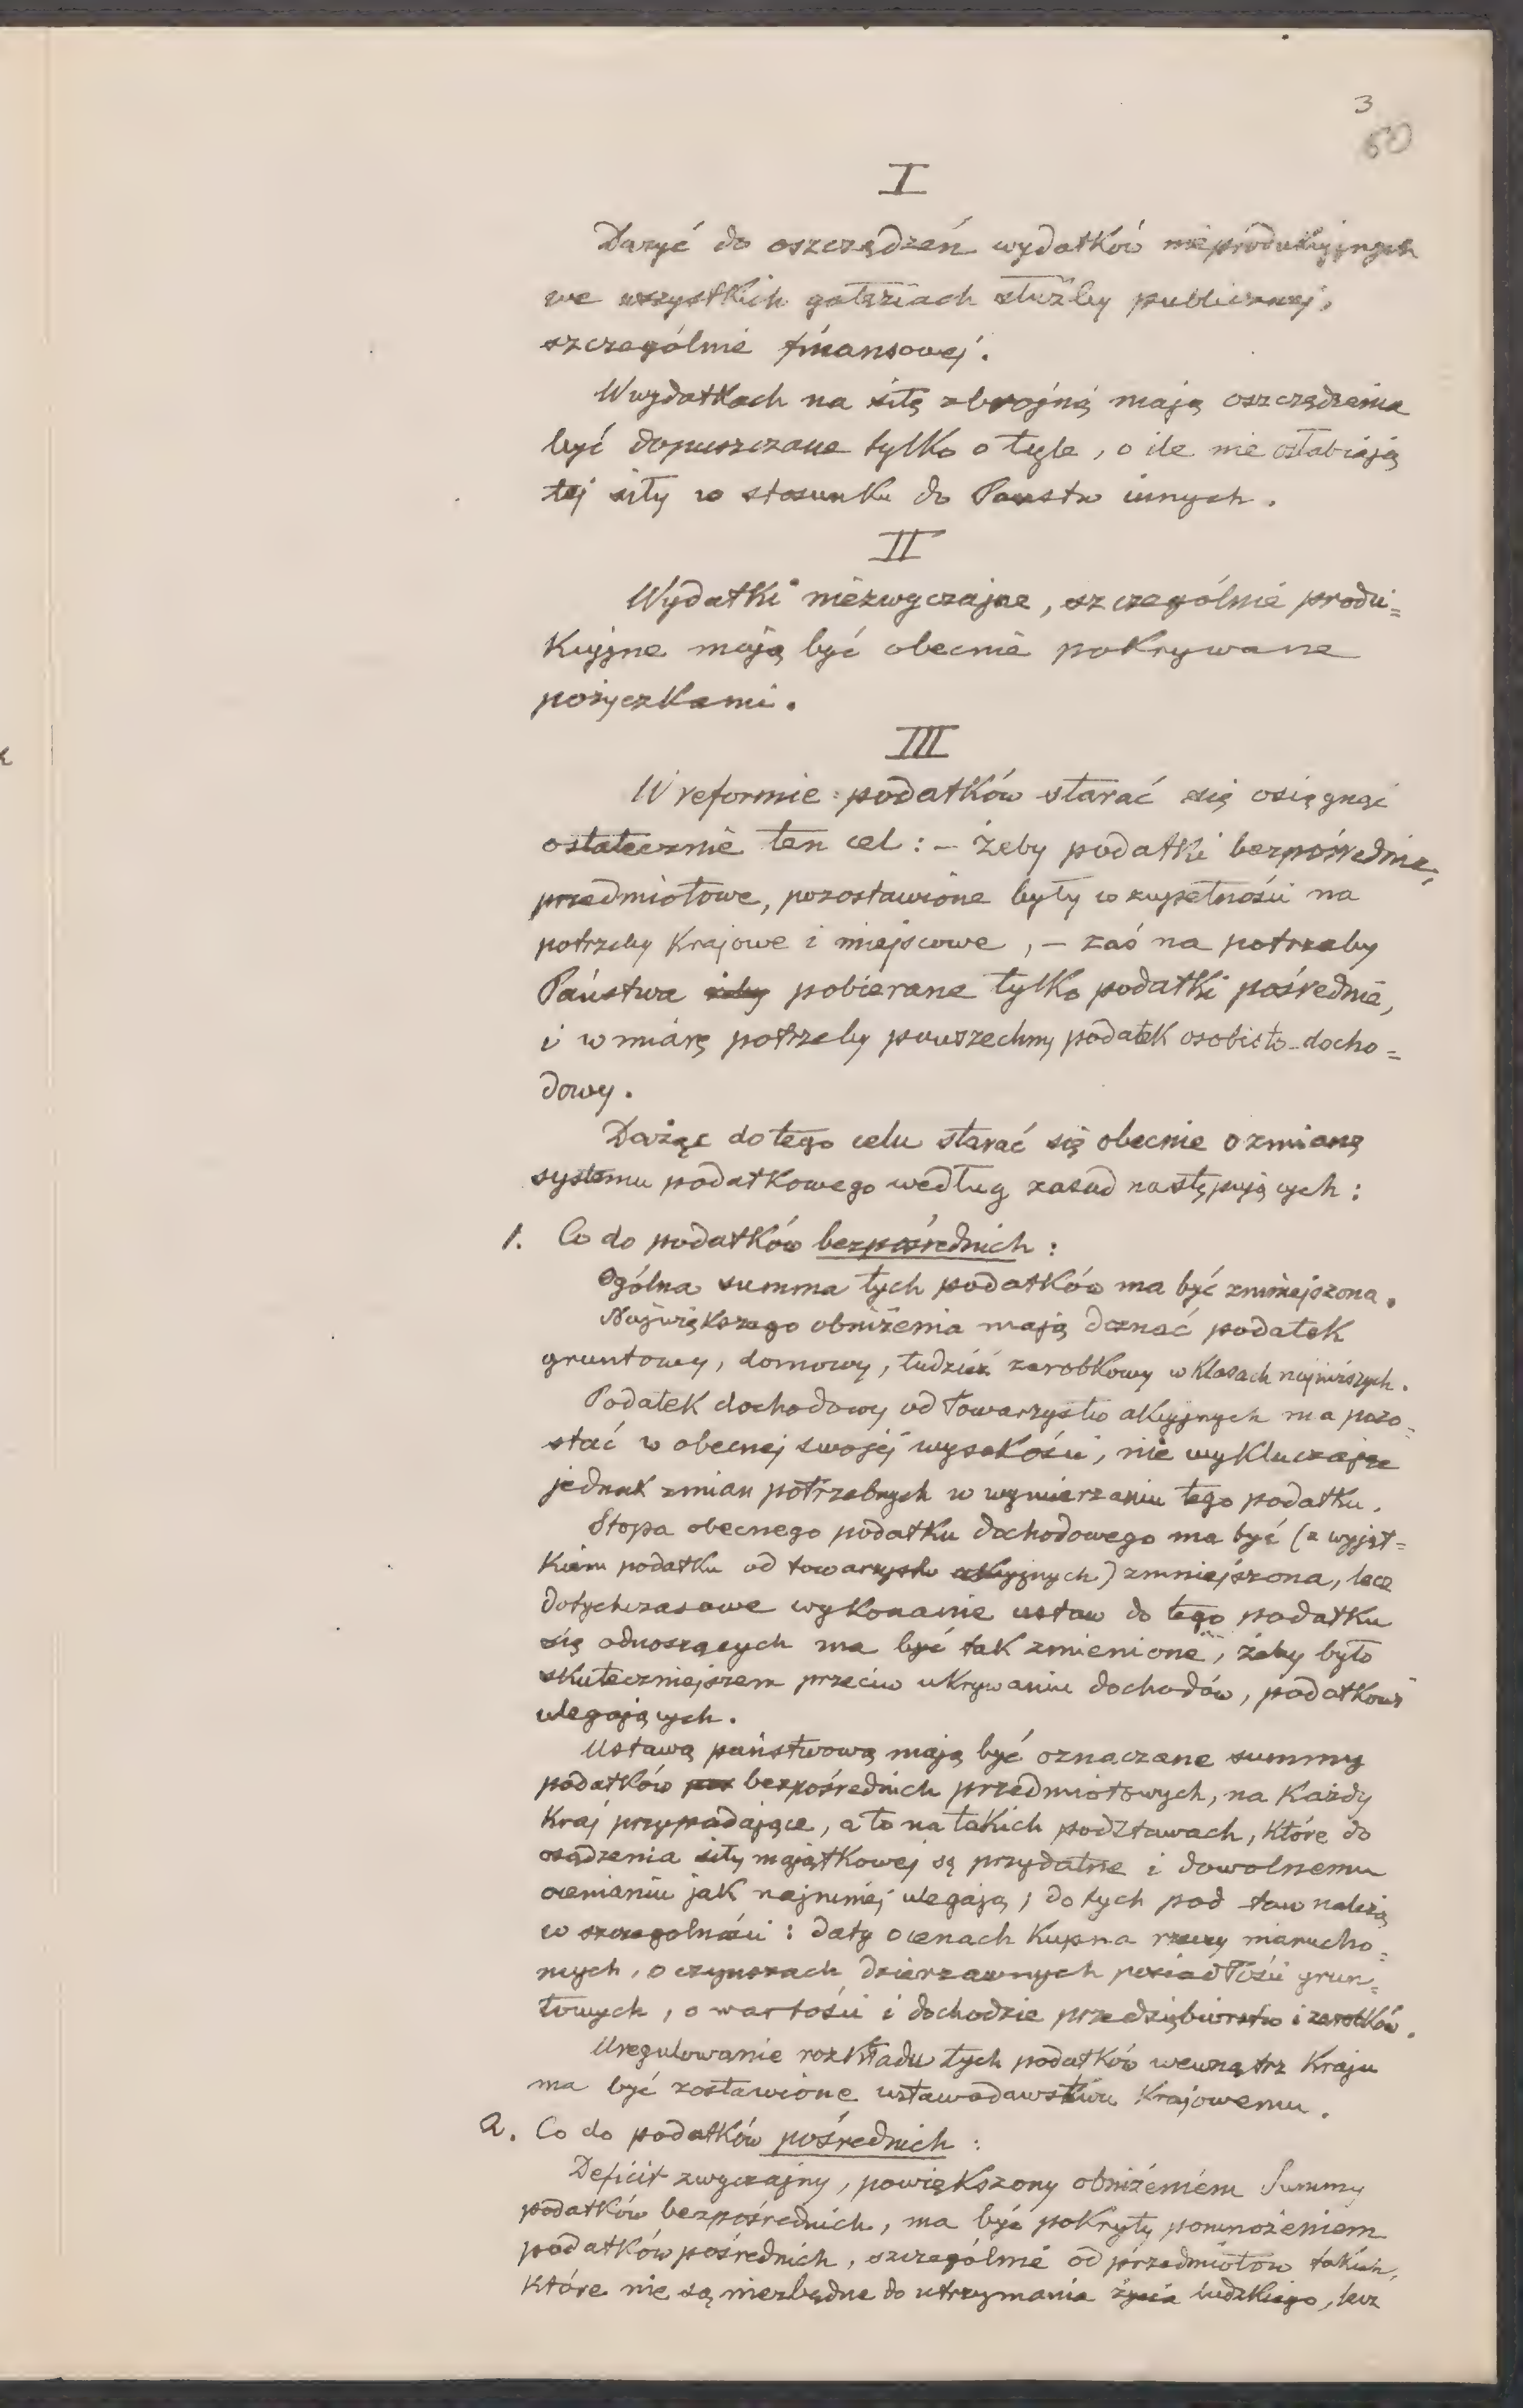 3
60
I
Dążyć do oszczędzeń wydatków nieprodukcyjnych
we wszystkich gałęziach służby publicznej,
szczególnie finansowej.
W wydatkach na siłę zbrojną mają oszczędzenia
być dopuszczane tylko o tyle, o ile nie osłabiają
tej siły w stosunku do Państw innych.
II
Wydatki niezwyczajne, szczególnie produ=
kcyjne mają być obecnie pokrywane
pożyczkami.
III
W reformie podatków starać się osiągnąć
ostatecznie ten cel: – żeby podatki bezpośrednie,
przedmiotowe, pozostawione były w zupełności na
potrzeby krajowe i miejscowe, – zaś na potrzeby
Państwa żeby pobierane tylko podatki pośrednie,
i w miarę potrzeby powszechny podatek osobisto-docho=
dowy.
Dążąc do tego celu starać się obecnie o zmianę
systemu podatkowego według zasad następujących:
1. Co do podatków bezpośrednich:
Ogólna summa tych podatków ma być zmniejszona.
Największego obniżenia mają doznać podatek
gruntowy, domowy, tudzież zarobkowy w klasach najniższych.
Podatek dochodowy od Towarzystw akcyjnych ma pozo=
stać w obecnej swojej wysokości, nie wykluczając
jednak zmian potrzebnych w wymierzaniu tego podatku.
Stopa obecnego podatku dochodowego ma być (z wyjąt=
kiem podatku od towarzystw akcyjnych) zmniejszona, lecz
dotychczasowe wykonanie ustaw do tego podatku
się odnoszących ma być tak zmienione, żeby było
skuteczniejszem przeciw ukrywaniu dochodów, podatkowi
ulegających.
Ustawą państwową mają być oznaczane summy
podatków bezpośrednich przedmiotowych, na każdy
kraj przypadające, a to na takich podstawach, które do
osądzenia siły majątkowej są przydatne i dowolnemu
ocenianiu jak najmniej ulegają; do tych pod staw należą
w szczególności: daty o cenach kupna rzeczy nierucho=
mych, o czynszach dzierzawnych posiadłości grun=
towych, o wartości i dochodzie przedsiębiorstw i zarobków.
Uregulowanie rozkładu tych podatków wewnątrz kraju
ma być zostawione ustawodawstwu krajowemu.
2. Co do podatków pośrednich:
Deficit zwyczajny, powiększony obniżeniem Summy
podatków bezpośrednich, ma być pokryty pomnożeniem
podatków pośrednich, szczególnie od przedmiotów takich,
które nie są niezbędne do utrzymania życia ludzkiego, lecz